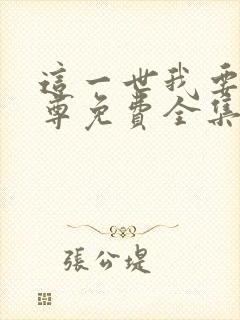 這一世我要
尊免費全集
張公堤